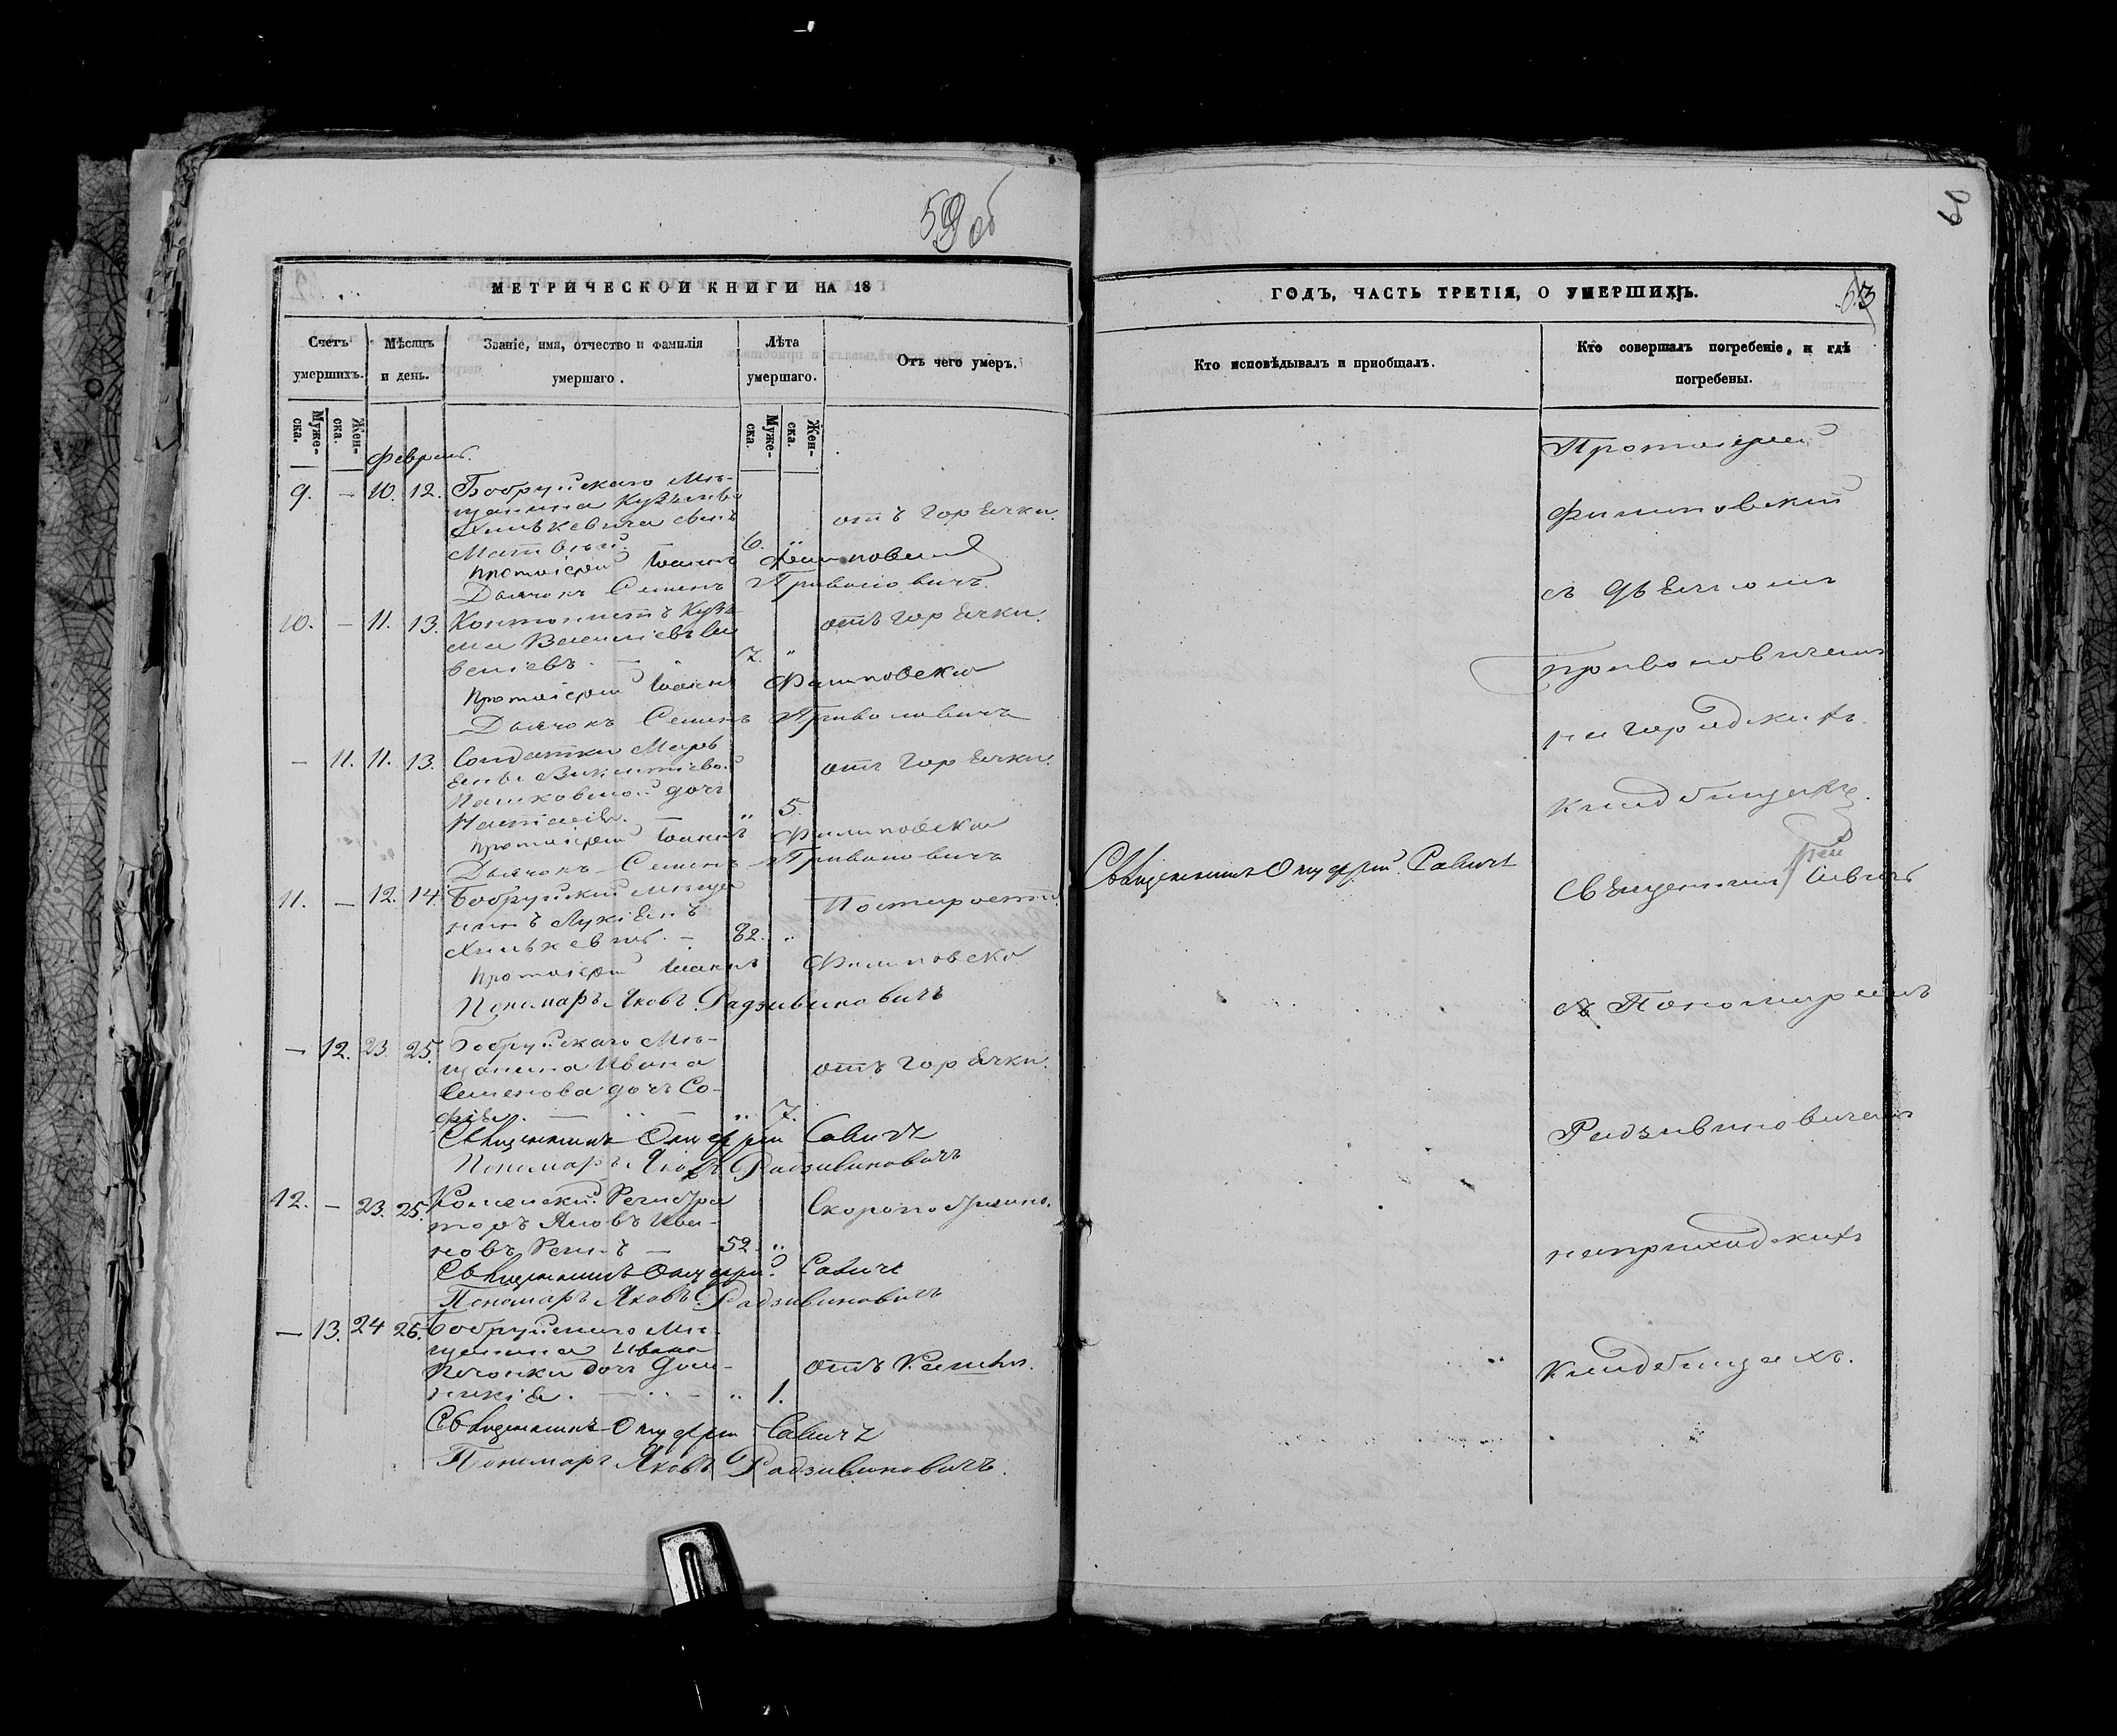 59 об
60
МЕТРИЧЕСКОЙ КНИГИ НА 18
ГОДЪ, ЧАСТЬ ТРЕТІЯ, О УМЕРШИХЪ.
63
Счетъ умершихъ.
Мѣсяцъ и день.
Званіе, имя, отчество и фамилія умершаго.
Лѣта умершаго.
Отъ чего умеръ.
Кто исповѣдывалъ и приобщалъ.
Кто совершалъ погребеніе, и гдѣ погребены.
Муже-ска.
Жен-ска.
Муже-ска.
Жен-ска.
Февраль.
9. — 10. 12. Бобруйскаго Мѣ-
щанина
Хилькевича сынъ
Матвѣй. 6. „ отъ горячки.
Протоіерей Іоаннъ Филиповскій
Дьячокъ Семенъ Приваловичъ
10. — 11. 13. Кантонистъ Кузь-
ма Василіевъ
7. „ отъ горячки.
Протоіерей Іоаннъ Филиповскій
Дьячокъ Семенъ Приваловичъ
— 11. 11. 13. Солдатки Марь
яны Викентіевой
Пашковой дочь
Наталія. „ 5. отъ горячки.
Протоіерей Іоаннъ Филиповскій
Дьячокъ Семенъ Приваловичъ
11. — 12. 14. Бобруйскій мѣща
нинъ Лукіянъ
Хилькевичъ. — 82. „ По старости
Протоіерей Іоаннъ Филиповскій
Пономарь Яковъ Радзивиновичъ
— 12. 23. 25. Бобруйскаго Мѣ-
щанина Ивана
Семенова дочь Со-
фія. — „ 7. отъ горячки.
Священникъ Онуфрій Савичъ
Пономарь Яковъ Радзивиновичъ
12. — 23. 25. Колежскій Регистра
торъ Яковъ Ива-
новъ — 52. „ Скоропостижно.
Священникъ Онуфрій Савичъ
Пономарь Яковъ Радзивиновичъ
— 13. 24 26. Бобруйскаго Мѣ-
щанина Ивана
дочь Дом-
никія. — „ 1. отъ Кашля.
Священникъ Онуфрій Савичъ
Пономарь Яковъ Радзивиновичъ.
Священникъ Онуфрій Савичъ
Протоіерей
Филиповскій
съ дьячкомъ
Приваловичемъ
на городскихъ
кладбищахъ.
Священникъ Савичъ
съ Пономаремъ
Радзивиновичемъ
на приходскихъ
Кладбищахъ.